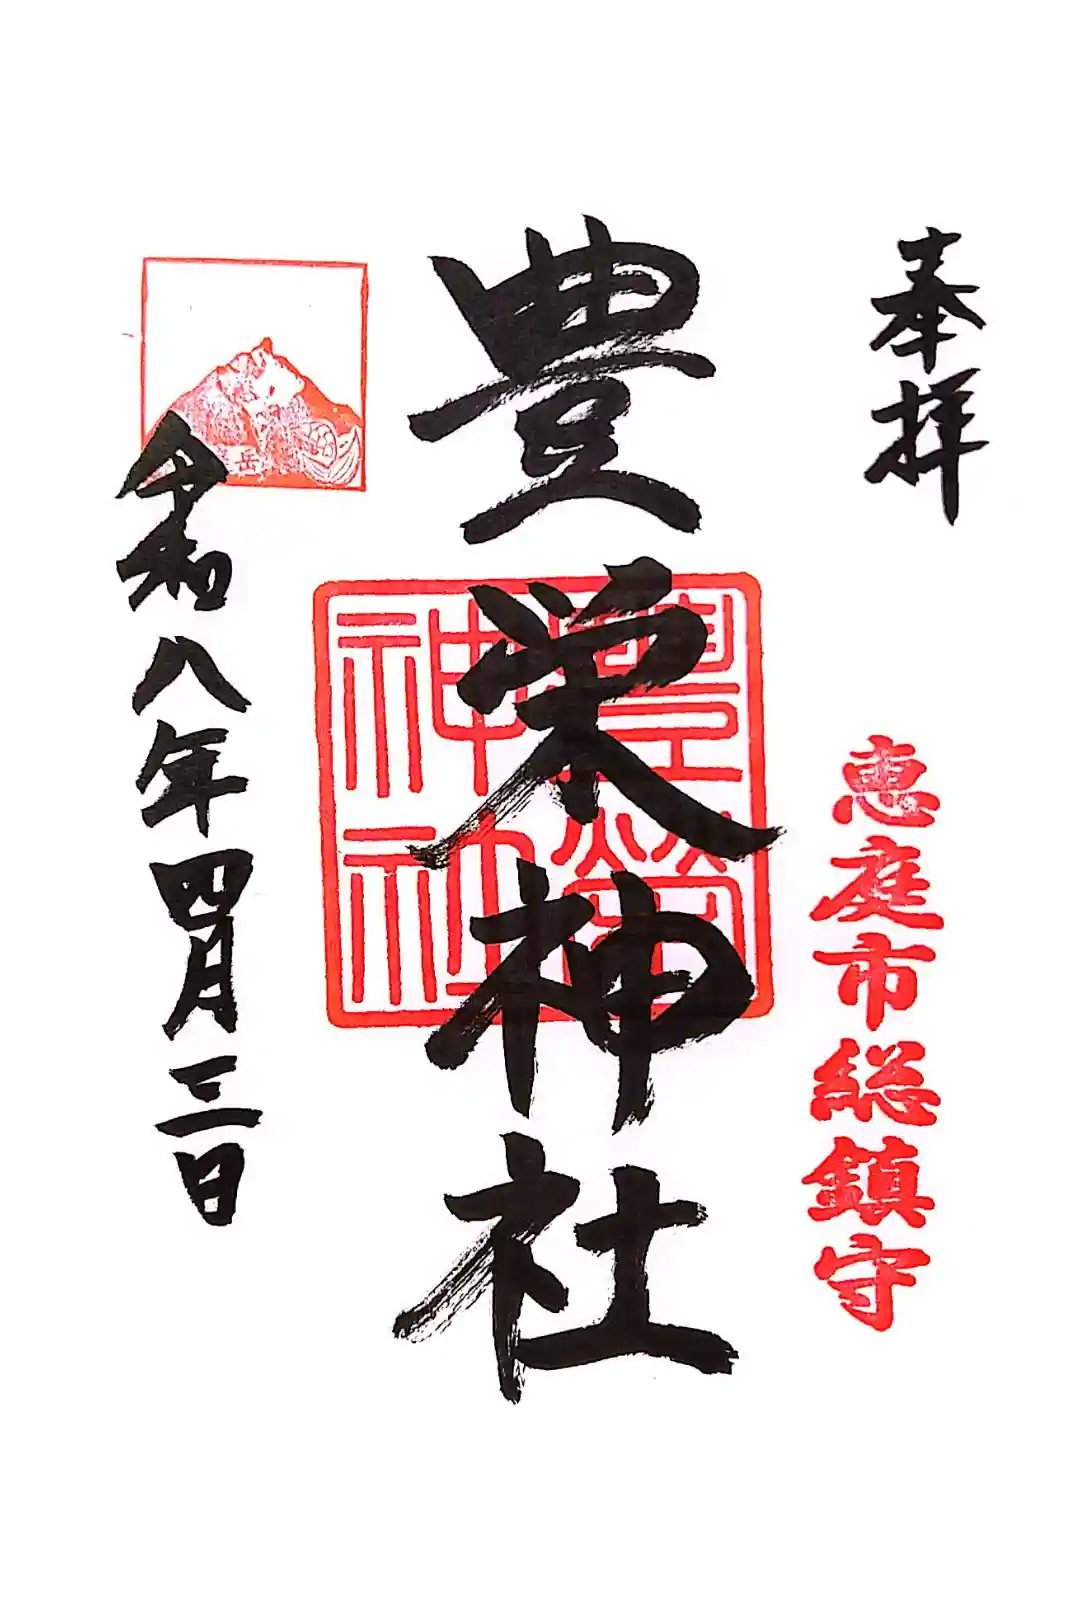 奉拝
恵庭市総鎮守
豊栄神社
豊榮
神社
岳
令和八年四月三日